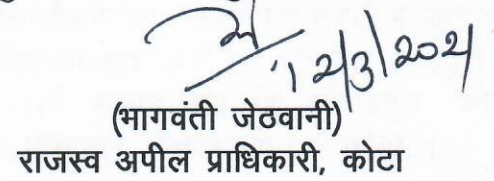 12/3/2021
(भागवंती जेठवानी)
राजस्व अपील प्राधिकारी, कोटा